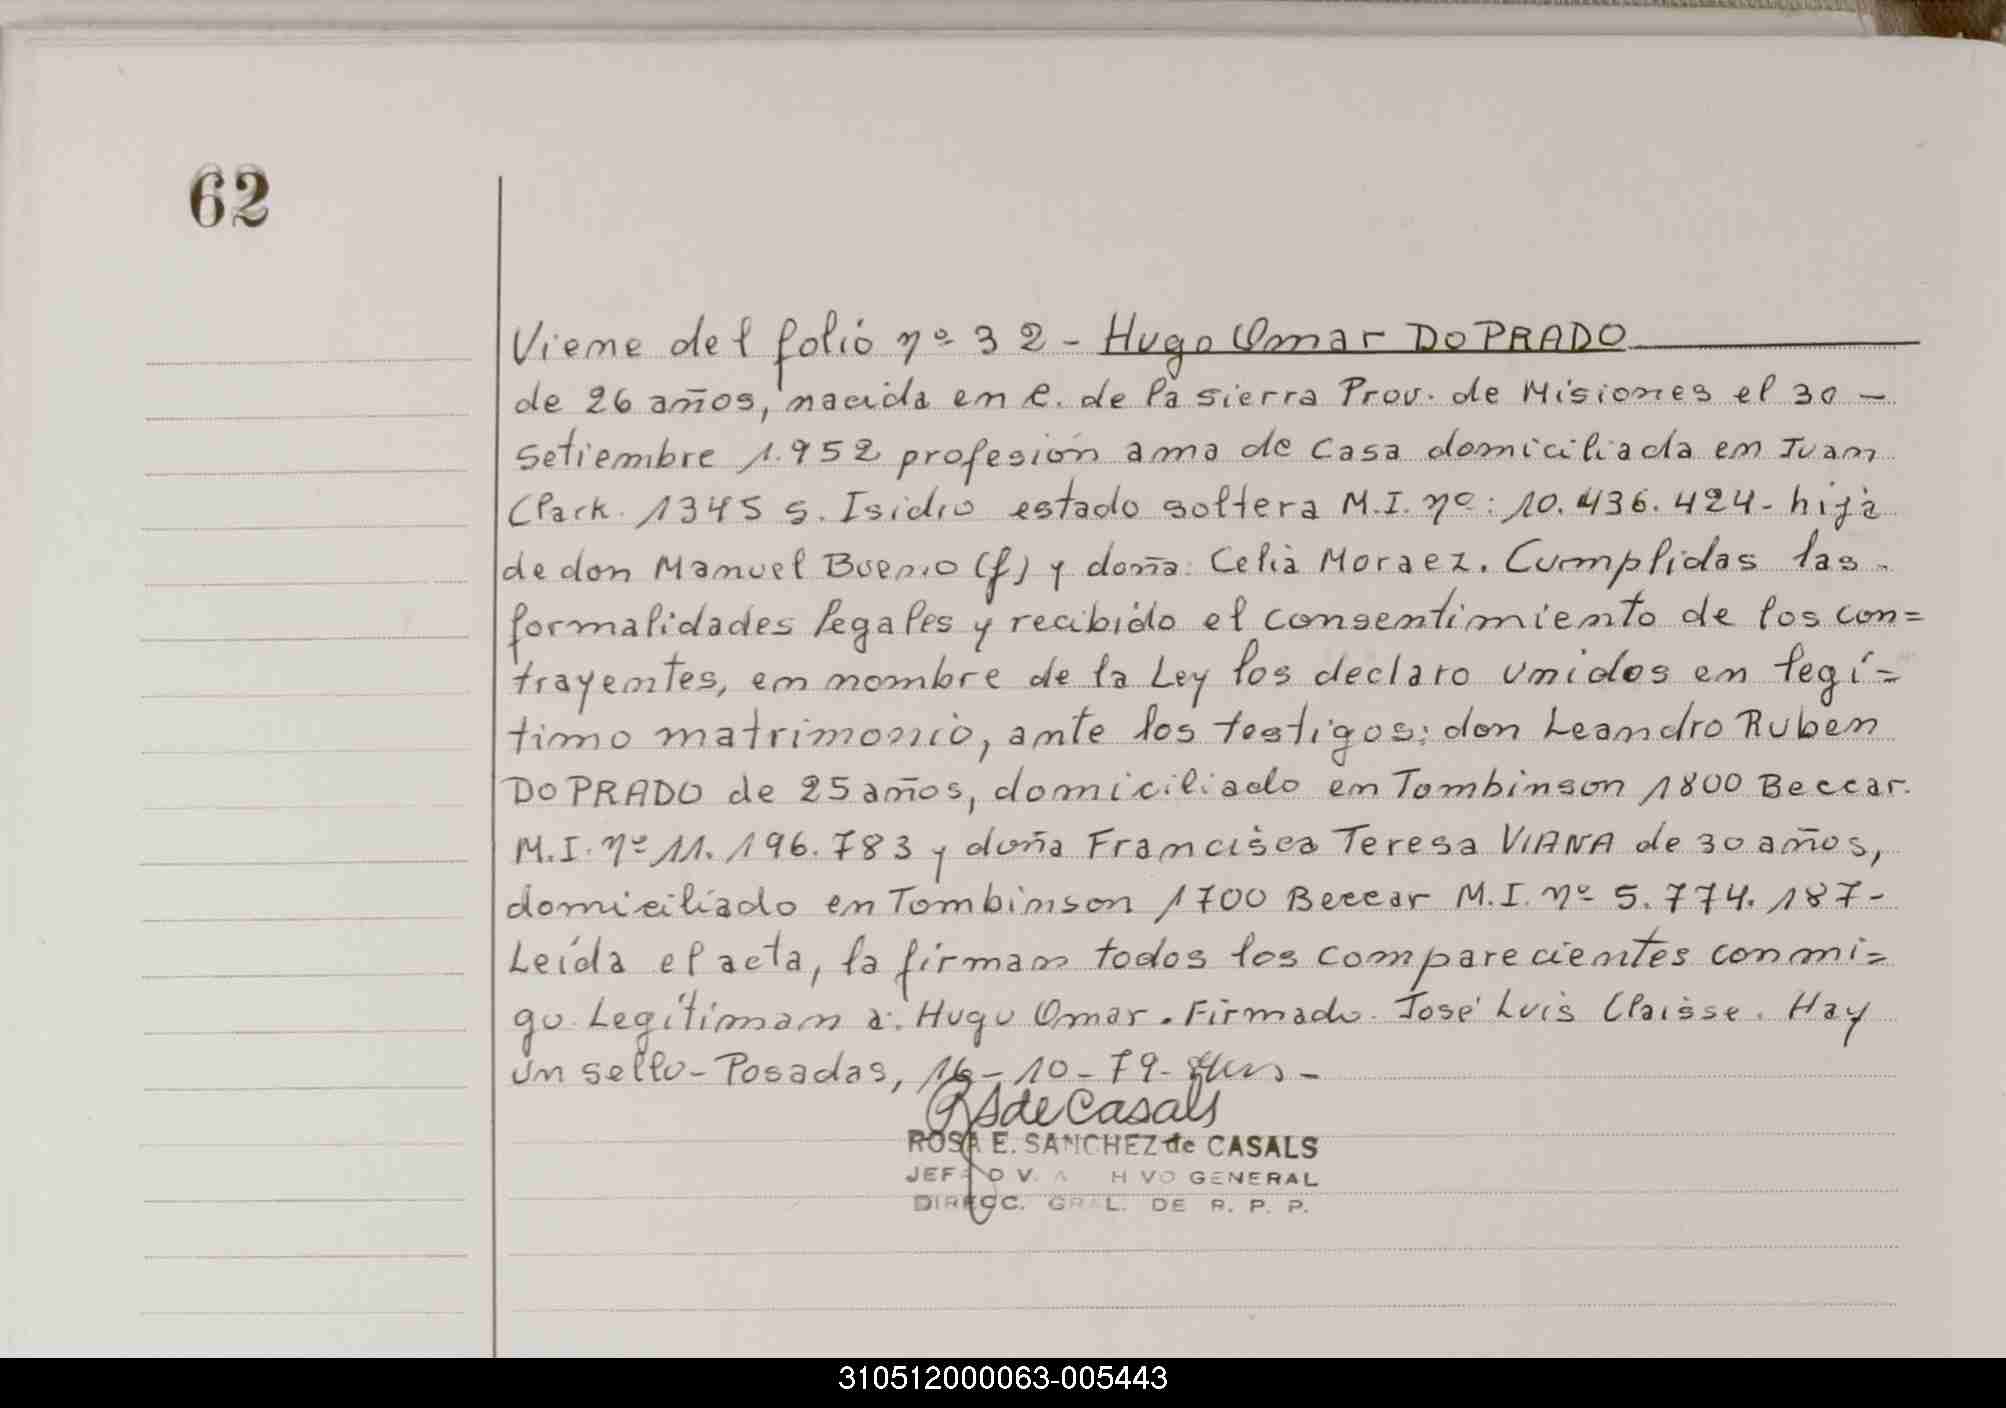 62
Viene del folio nº 32 - Hugo Omar DO PRADO
de 26 años, nacida en C. de la sierra Prov. de Misiones el 30 -
Setiembre 1.952 profesión ama de Casa domiciliada en Juan
Clark. 1345 S. Isidro estado soltera M.I. nº: 10.436.424- hija
de don Manuel Bueno (f) y doña: Celia Moraez. Cumplidas las -
formalidades legales y recibido el consentimiento de los con=
trayentes, en nombre de la Ley los declaro unidos en legí=
timo matrimonio, ante los testigos: don Leandro Ruben
DO PRADO de 25 años, domiciliado en Tombinson 1800 Beccar.
M.I. nº 11.196.783 y doña Francisca Teresa VIANA de 30 años,
domiciliado en Tombinson 1700 Beccar M.I. nº 5.774.187-
Leída el acta, la firman todos los comparecientes conmi=
go. Legitiman a: Hugo Omar. Firmado. José Luis Claisse. Hay
un sello- Posadas, 16-10-79-
RS de Casals
ROSA E. SANCHEZ de CASALS
GENERAL
DIRECC. GRAL. DE R. P. P.
310512000063-005443